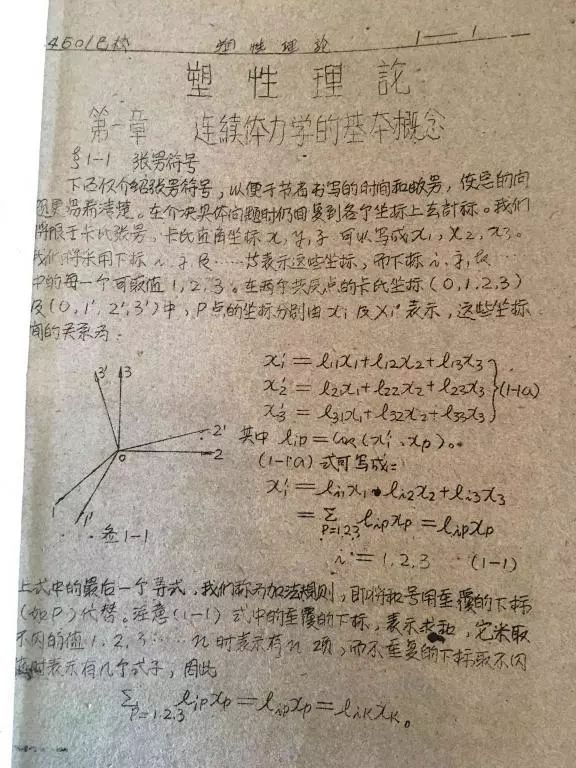 塑性理論
1—1
塑性理論
第一章 连續体力学的基本概念
§1-1 张量符号
下面仅介紹张量符号，以便于节省书写的时间和
。在介决具体问题时仍回复到各个坐标上去計标。我们
将限于卡氏张量，卡氏直角坐标 x, y, z 可以写成 x₁, x₂, x₃。
我们将采用下标 i, j 及……等表示这些坐标，而下标 i, j,
中的每一个可取值 1, 2, 3。在两个共原点的卡氏坐标 (0,1,2,3)
及 (0,1′,2′,3′) 中，P点的坐标分别由 xi 及 xi′ 表示，这些坐标
间的关系为：
x₁′ = l₁₁x₁+l₁₂x₂+l₁₃x₃
x₂′ = l₂₁x₁+l₂₂x₂+l₂₃x₃ (1-1a)
x₃′ = l₃₁x₁+l₃₂x₂+l₃₃x₃
其中 lip = cos(xi′, xp)。
(1-1a) 式可写成：
xi′ = li₁x₁+li₂x₂+li₃x₃
= ∑ lip xp = lip xp
P=1,2,3
i = 1, 2, 3 (1-1)
3′ 3
2′
0
2
1
1′
图1-1
上式中的最后一个等式，我们称为加法规则，即将和号用重覆的下标
(如P) 代替。注意 (1-1) 式中的重覆的下标，表示求和，它采取
不同的值 1, 2, 3…… n 时表示有 n 项，而不重复的下标取不同
值时表示有几个式子，因此
∑ lip xp = lip xp = lik xk。
P=1,2,3